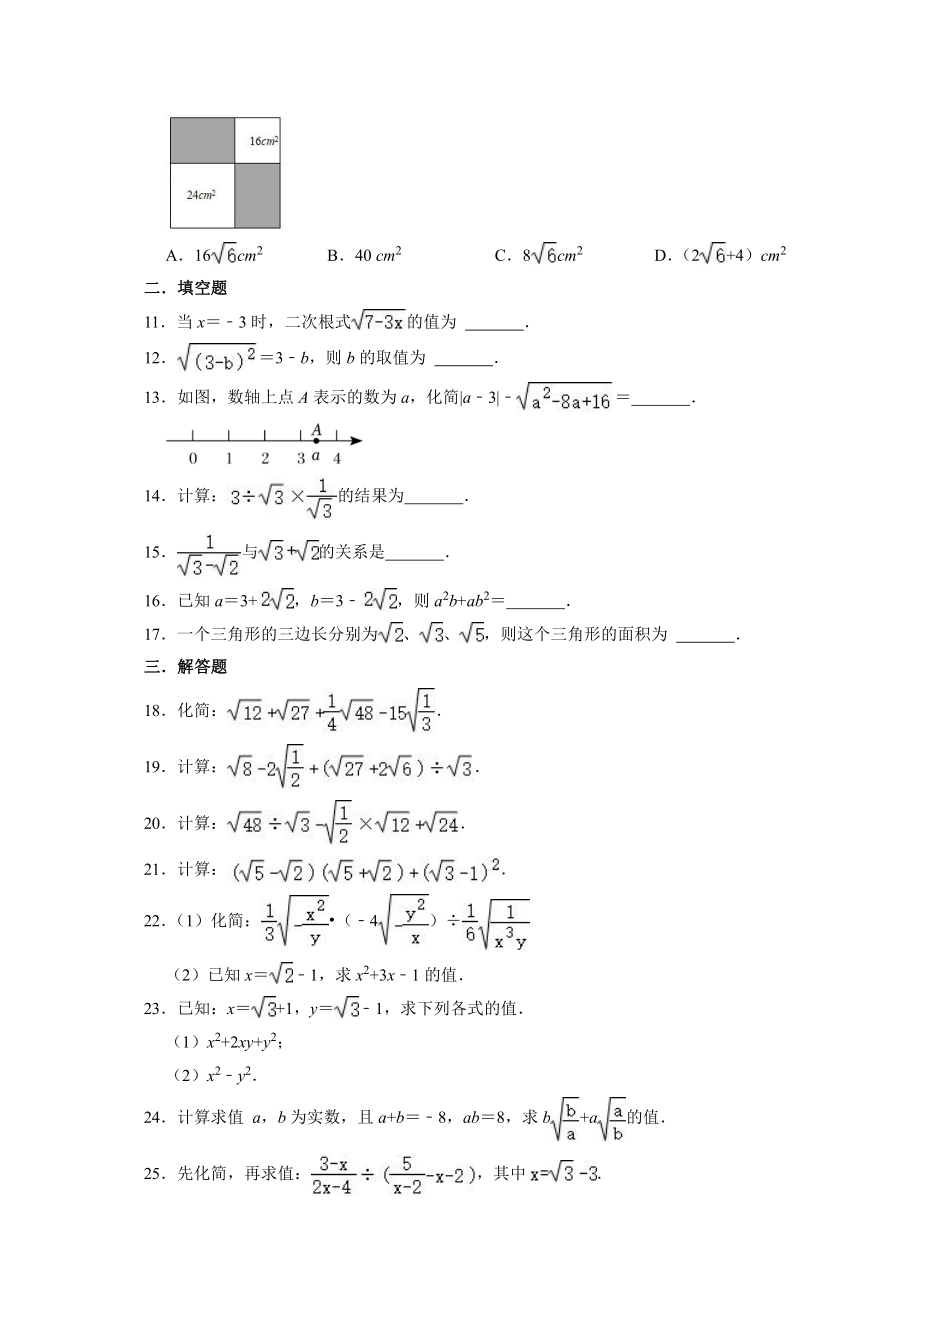 16cm²
24cm²
A．16√6cm² B．40 cm² C．8√6cm² D．（2√6+4）cm²
二．填空题
11．当 x＝﹣3 时，二次根式√(7-3x)的值为 ______．
12．√((3-b)²)＝3﹣b，则 b 的取值为 ______．
13．如图，数轴上点 A 表示的数为 a，化简|a﹣3|﹣√(a²-8a+16)＝______．
A
0 1 2 3 a 4
14．计算：3÷√3×1/√3的结果为______．
15．1/(√3-√2)与√3+√2的关系是______．
16．已知 a＝3+2√2，b＝3﹣2√2，则 a²b+ab²＝______．
17．一个三角形的三边长分别为√2、√3、√5，则这个三角形的面积为 ______．
三．解答题
18．化简：√12+√27+1/4√48-15√(1/3)．
19．计算：√8-2√(1/2)+(√27+2√6)÷√3．
20．计算：√48÷√3-√(1/2)×√12+√24．
21．计算：(√5-√2)(√5+√2)+(√3-1)²．
22．（1）化简：1/3√(-x²/y)•（﹣4√(-y²/x)）÷1/6√(1/(x³y))
（2）已知 x＝√2﹣1，求 x²+3x﹣1 的值．
23．已知：x＝√3+1，y＝√3﹣1，求下列各式的值．
（1）x²+2xy+y²；
（2）x²﹣y²．
24．计算求值 a，b 为实数，且 a+b＝﹣8，ab＝8，求 b√(b/a)+a√(a/b)的值．
25．先化简，再求值：(3-x)/(2x-4)÷(5/(x-2)-x-2)，其中 x=√3-3．